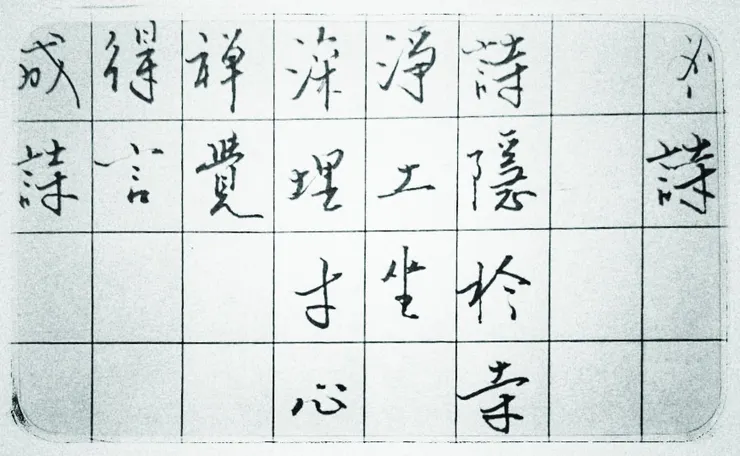 詩
詩隱於寺
淨土坐
深埋寸心
禪覺
得言
成詩